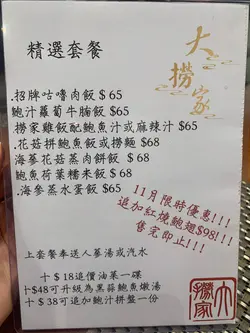 大撈家
精選套餐
.招牌咕嚕肉飯 $65
鮑汁蘿蔔牛腩飯 $65
撈家雞飯配鮑魚汁或麻辣汁 $65
.花菇拼鮑魚飯或撈麵 $68
海蔘花菇蒸肉餅飯 $68
鮑魚荷葉糯米飯 $68
.海參蒸水蛋飯 $65
11月限時優惠!!!
追加紅燒鮑翅$98!!!
售完即止!!!
上套餐奉送人蔘湯或汽水
十＄18追價油菜一碟
十$48可升級為黑蒜鮑魚燉湯
十＄38可追加鮑汁拼盤一份
大撈家